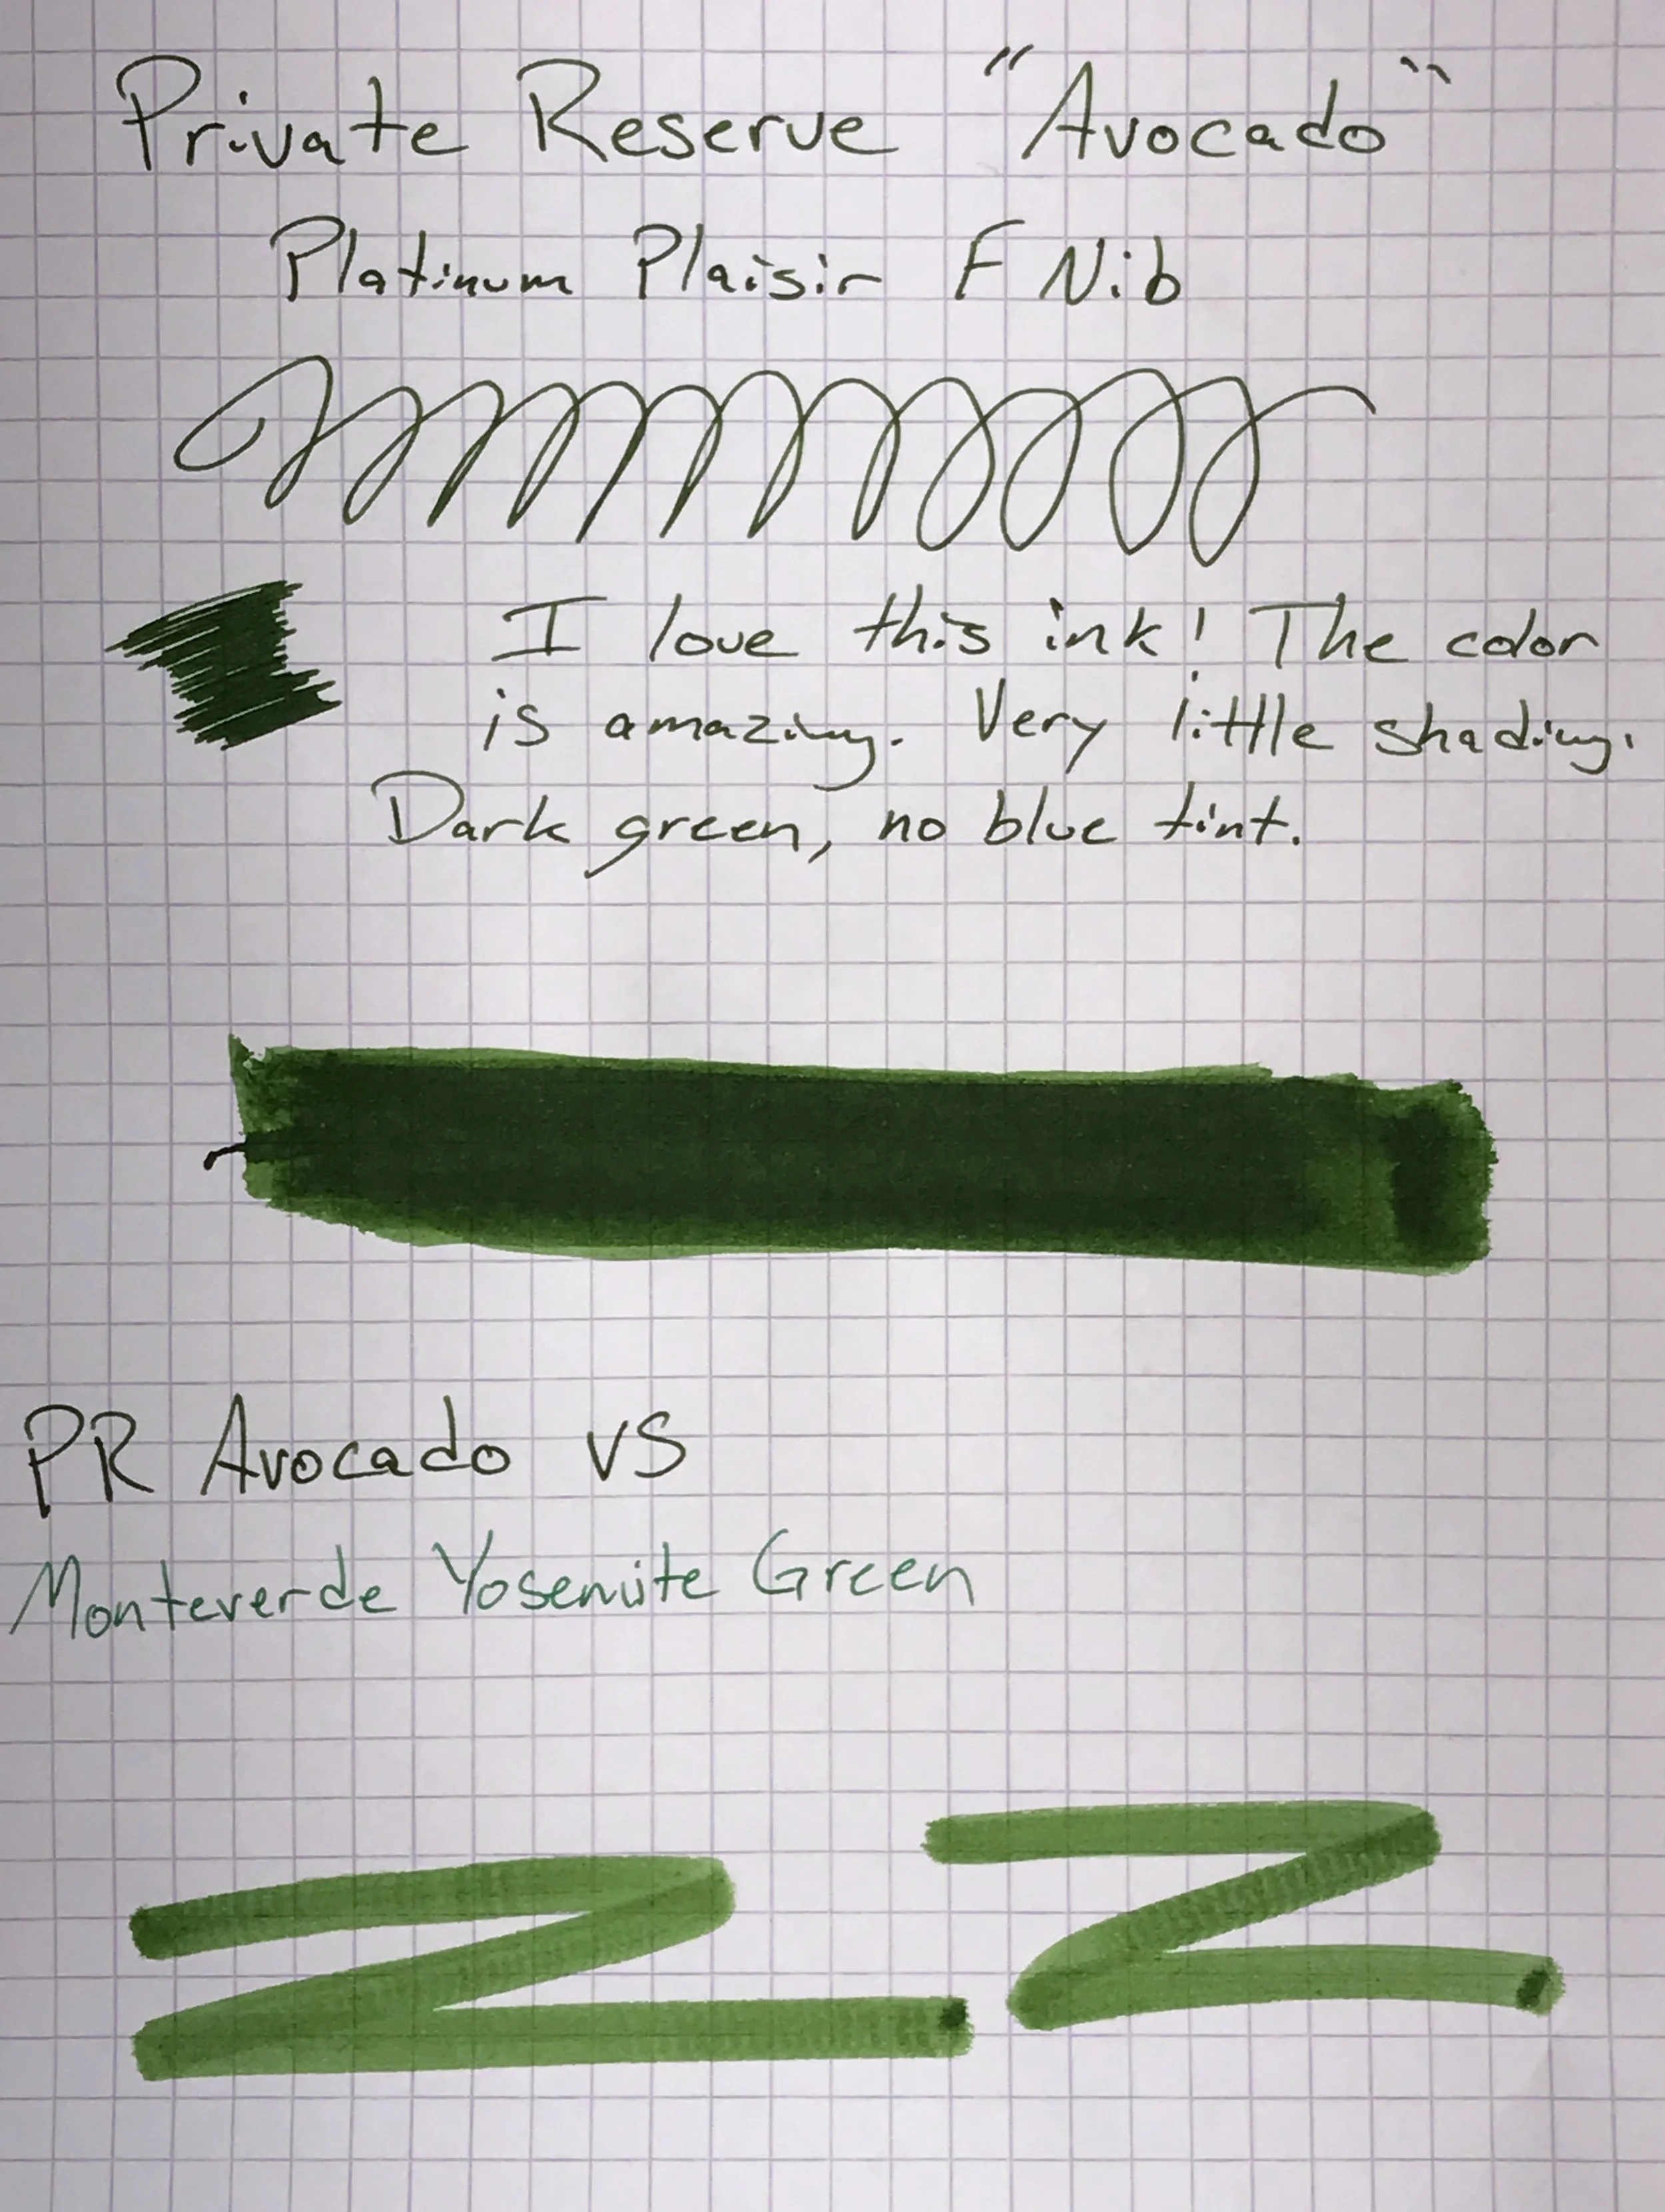 Private Reserve "Avocado"
Platinum Plaisir F Nib
I love this ink! The color
is amazing. Very little shading.
Dark green, no blue tint.
PR Avocado vs
Monteverde Yosemite Green